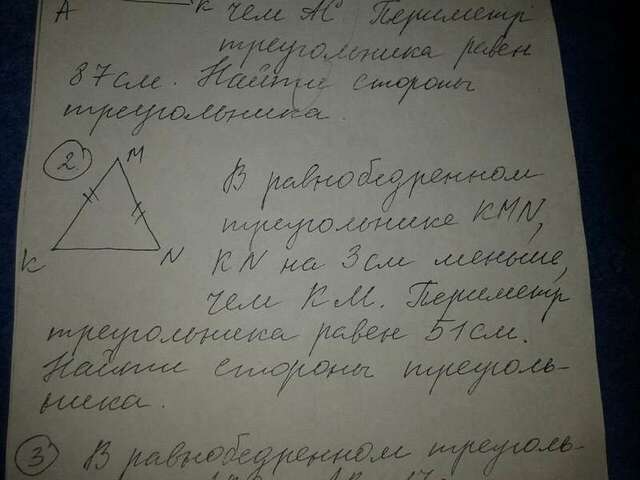 A K чем АС Периметр
треугольника равен
87см. Найти стороны
треугольника
2 M
В равнобедренном
треугольнике KMN,
K N KN на 3см меньше,
чем КМ. Периметр
треугольника равен 51см.
Найти стороны треуголь-
ника.
3 В равнобедренном треуголь-